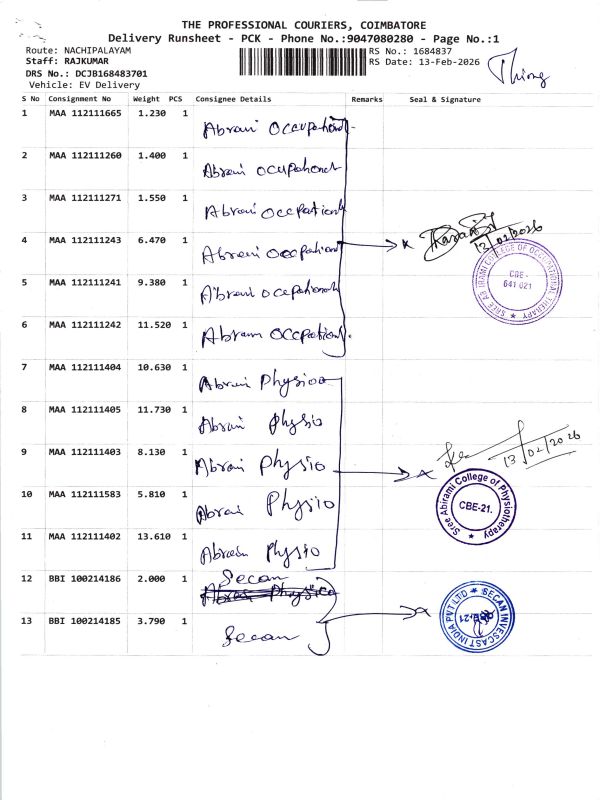 THE PROFESSIONAL COURIERS, COIMBATORE
Delivery Runsheet - PCK - Phone No.:9047080280 - Page No.:1
Route: NACHIPALAYAM RS No.: 1684837
Staff: RAJKUMAR RS Date: 13-Feb-2026
DRS No.: DCJB168483701
Vehicle: EV Delivery
S No Consignment No Weight PCS Consignee Details Remarks Seal & Signature
1 MAA 112111665 1.230 1 Abrami Occupational
2 MAA 112111260 1.400 1 Abrami Occupational
3 MAA 112111271 1.550 1 Abrami
4 MAA 112111243 6.470 1 Abrami
13/02/2026
SREE ABIRAMI COLLEGE OF OCCUPATIONAL THERAPY
CBE - 641 021
5 MAA 112111241 9.380 1 Abrami
6 MAA 112111242 11.520 1 Abram
7 MAA 112111404 10.630 1 Abrami Physio
8 MAA 112111405 11.730 1 Abrami Physio
9 MAA 112111403 8.130 1 Abrami Physio
13/02/2026
Sree Abirami College of Physiotherapy
CBE-21.
10 MAA 112111583 5.810 1 Abrami Physio
11 MAA 112111402 13.610 1 Physio
12 BBI 100214186 2.000 1 Secan
SECAN INVESCAST INDIA PVT LTD
13 BBI 100214185 3.790 1 Secan